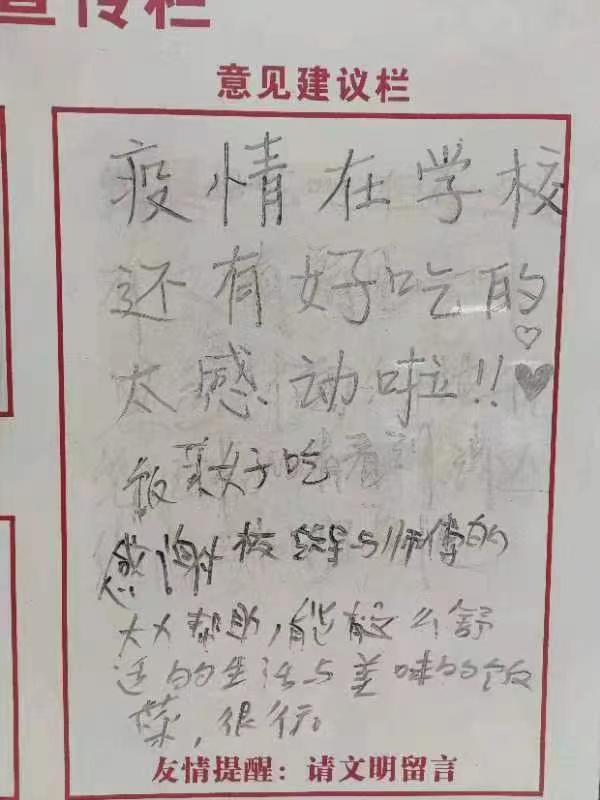 宣传栏
意见建议栏
疫情在学校
还有好吃的
太感动啦!!
饭菜好吃
感谢校领导与师傅的
大大帮助,能有这么舒
适的生活与美味的饭
菜,很行。
友情提醒:请文明留言